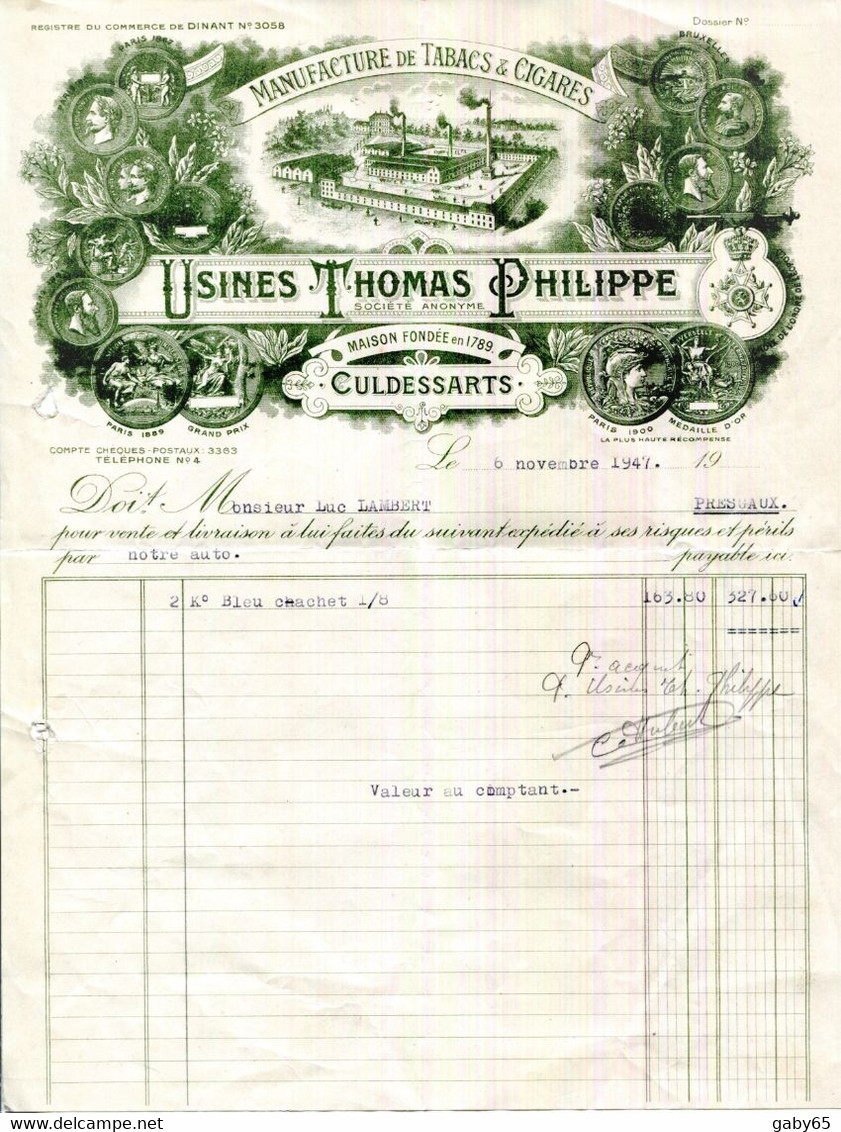 REGISTRE DU COMMERCE DE DINANT Nº 3058
Dossier Nº
PARIS 1867
BRUXELLES
MANUFACTURE DE TABACS & CIGARES
USINES THOMAS PHILIPPE
SOCIÉTÉ ANONYME
MAISON FONDÉE en 1789.
CULDESSARTS
PARIS 1889
GRAND PRIX
PARIS 1900
MÉDAILLE D'OR
LA PLUS HAUTE RÉCOMPENSE
COMPTE CHEQUES-POSTAUX: 3363
TÉLÉPHONE Nº 4
Le 6 novembre 1947. 19
Doit Monsieur Luc LAMBERT PRESGAUX.
pour vente et livraison à lui faites du suivant expédié à ses risques et périls
par notre auto. payable ici.
2 Kº Bleu chachet 1/8 163.80 327.60
=======
Pr acquit
P. Usines Th. Philippe
Valeur au comptant.-
delcampe.net
gaby65